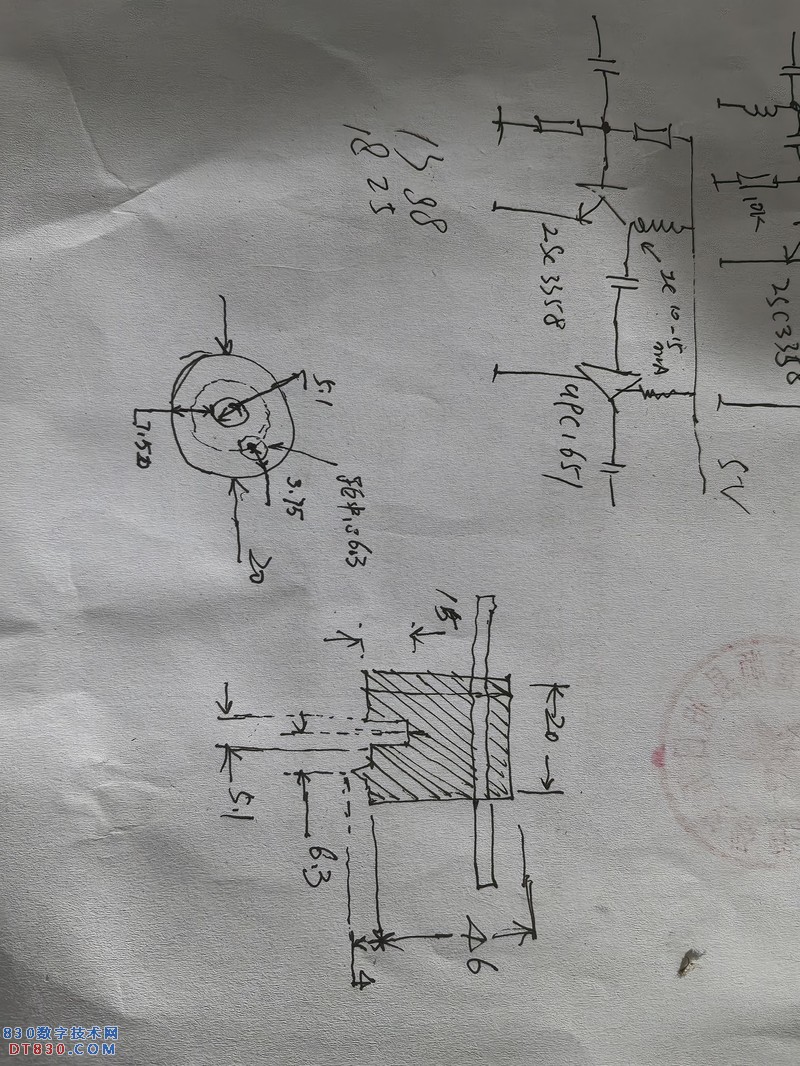 10K
2SC3358
5V
Ic 10-15
mA
2SC3358
UPC1651
1588
1825
5.1
7.50
3.75
6.3
20
15
20
5.1
6.3
4
46
830数字技术网
DT830.COM